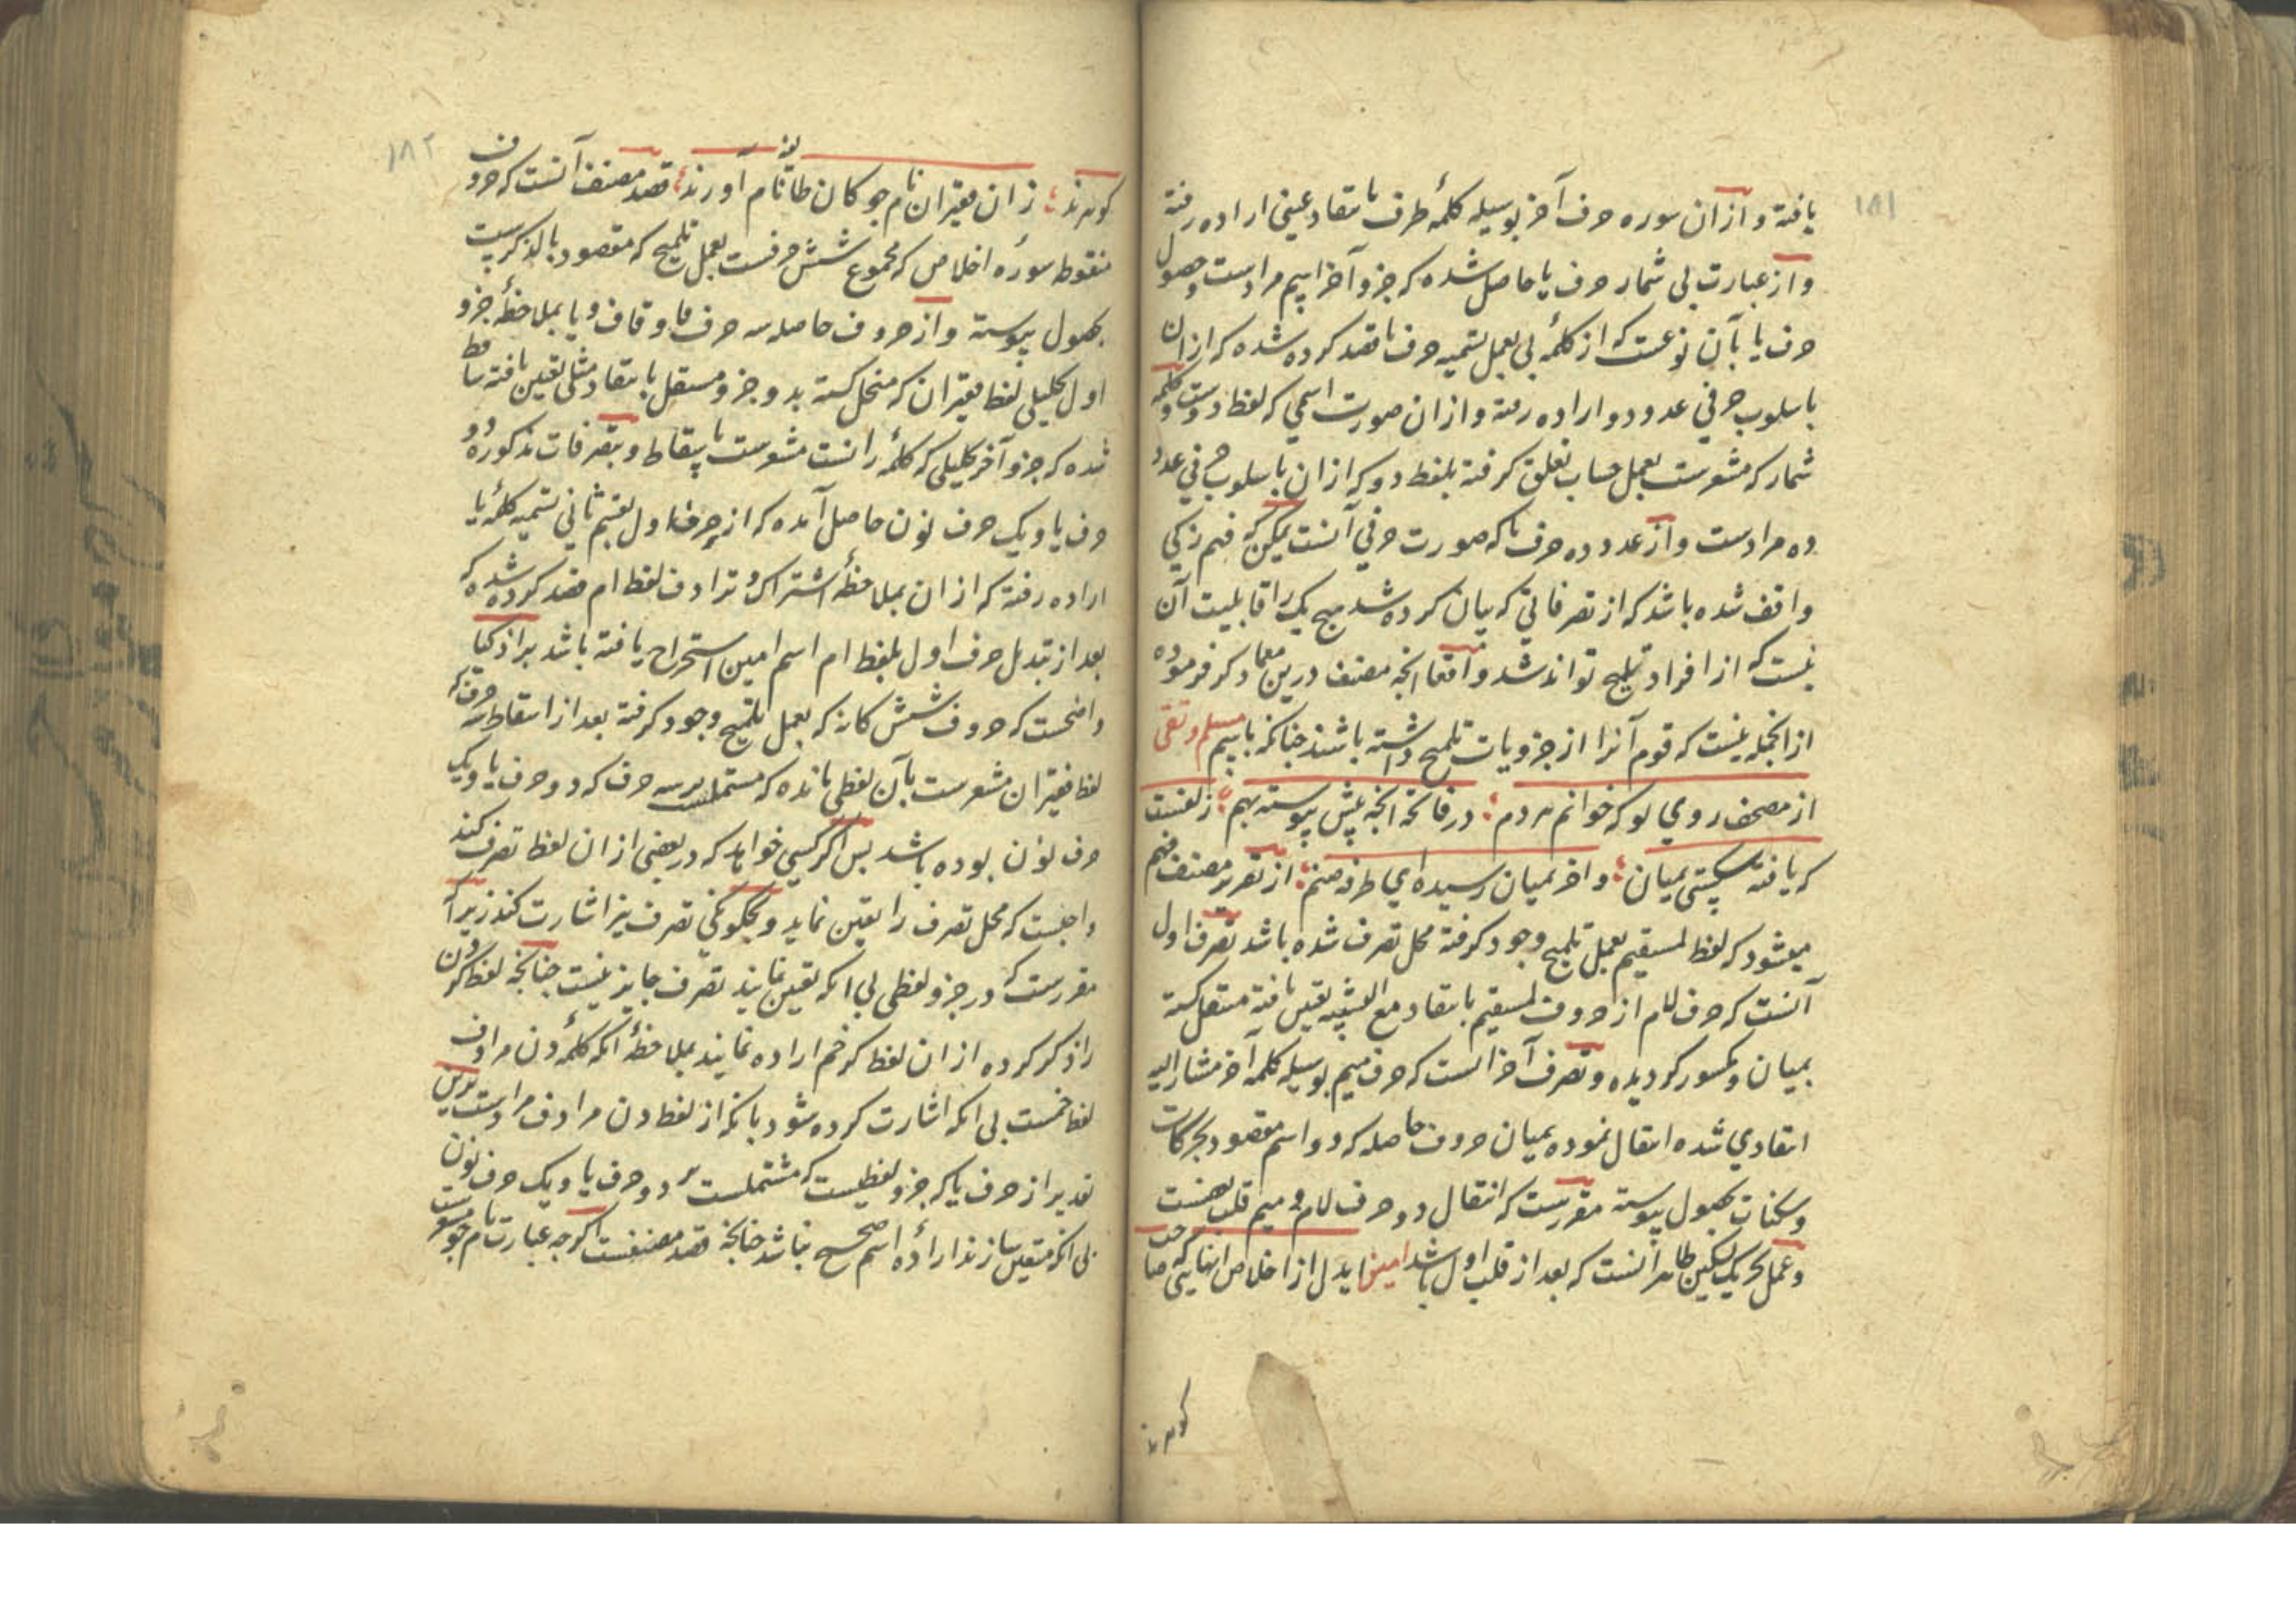 ۱۸۱
یافته و ازان سوره حرف آخر بوسیله کلمهٔ طرف بانتقاد عینی اراده رفته
و از عبارت بی شمار حرف یا حاصل شده که جزو آخر اسم مرادست و حصول
حرف یا بآن نوعست که از کلمهٔ بی بعمل تسمیه حرف با قصد کرده شده که ازان
باسلوب حرفی عدد دو اراده رفته و ازان صورت اسمی که لفظ دوست و کلمه
شمار که مشعرست بعمل حساب تعلق گرفته بلفظ دو که ازان باسلوب حرفی عدد
ده مرادست و از عدد ده حرف یا که صورت حرفی آنست لیکن که فهم زکی
واقف شده باشد که از تصرفاتی که بیان کرده شد هیچ یک را قابلیت آن
نیست که از افراد تلمیح تواند شد و اقعا انچه مصنف درین معما ذکر فرموده
از انجمله نیست که قوم آنرا از جزویات تلمیح داشته باشند چنانکه باسم مسلم و تقی
از مصحف روی لو که خوانم هر دم در فاتحه انچه پیش پیوسته بهم زلفست
که یافته شکستی بمیان و اخر بمیان رسیده ای طرفه صنم از تقریر مصنف فهم
میشود که لفظ لمستقیم بعمل تلمیح وجود گرفته محل تصرف شده باشد تصرف اول
آنست که حرف لام از حروف لمستقیم بانتقاد مع التشبیه تعیین یافته منتقل گشته
بمیان و مکسور گردیده و تصرف آخر انست که حرف میم بوسیله کلمهٔ آخر مشار الیه
انتقادی شده انتقال نموده بمیان حروف حاصله که دو اسم مقصود بحرکات
و سکنات بحصول پیوسته مقررست که انتقال دو حرف لام و میم قلب بعضست
و عمل تحریک تسکین ظاهر آنست که بعد از قلب اول باشد امین ایدل از اخلاص انهایی که صاحب
گوهرند
۱۸۲
گوهرند زان فقیران نام جو کان طا نام آورند قصد مصنف آنست که حروف
منقوطه سورهٔ اخلاص که مجموع شش حرفست بعمل تلمیح که مقصود بالذکرست
بحصول پیوسته و از حروف حاصله سه حرف فا و قاف و یا بملاحظهٔ جزو
اول تحلیلی لفظ فقیران که منحل گشته بدو جزو مستقل بانتقاد مثلی تعین یافته ساقط
شده که جزو آخر تحلیلی که کلمهٔ رانست مشعرست باسقاط و بتصرفات مذکوره دو
حرف یا و یک حرف نون حاصل آمده که از حرف اول بقسم ثانی تسمیه کلمهٔ یا
اراده رفته که ازان بملاحظهٔ اشتراک و ترادف لفظ ام قصد کرده شده که
بعد از تبدیل حرف اول بلفظ ام اسم امین استخراج یافته باشد بر اذکیا
واضحست که حروف شش گانه که بعمل تلمیح وجود گرفته بعد از اسقاط سه حرف که
لفظ فقیران مشعرست بآن لفظی مانده که مشتملست بر سه حرف که دو حرف یا و یک
حرف نون بوده باشد پس اگر کسی خواهد که در بعضی ازان لفظ تصرف کند
واجبست که محل تصرف را تعین نماید و بچگونگی تصرف نیز اشارت کند زیرا که
مقررست که در جزو لفظی بی انکه تعین نمایند تصرف جایز نیست چنانچه لفظ گردن
را ذکر کرده ازان لفظ کرخم اراده نمایند بملاحظهٔ انکه کلمهٔ دن مرادف
لفظ خمست بی انکه اشارت کرده شود بانکه از لفظ دن مرادف مرادست برین
تقدیر از حرف یا که جزو لفظیست که مشتملست بر دو حرف یا و یک حرف نون
بی انکه متعین سازند ارادهٔ اسم صحیح نباشد چنانچه قصد مصنفست اگرچه عبارت نام جو مشعرست